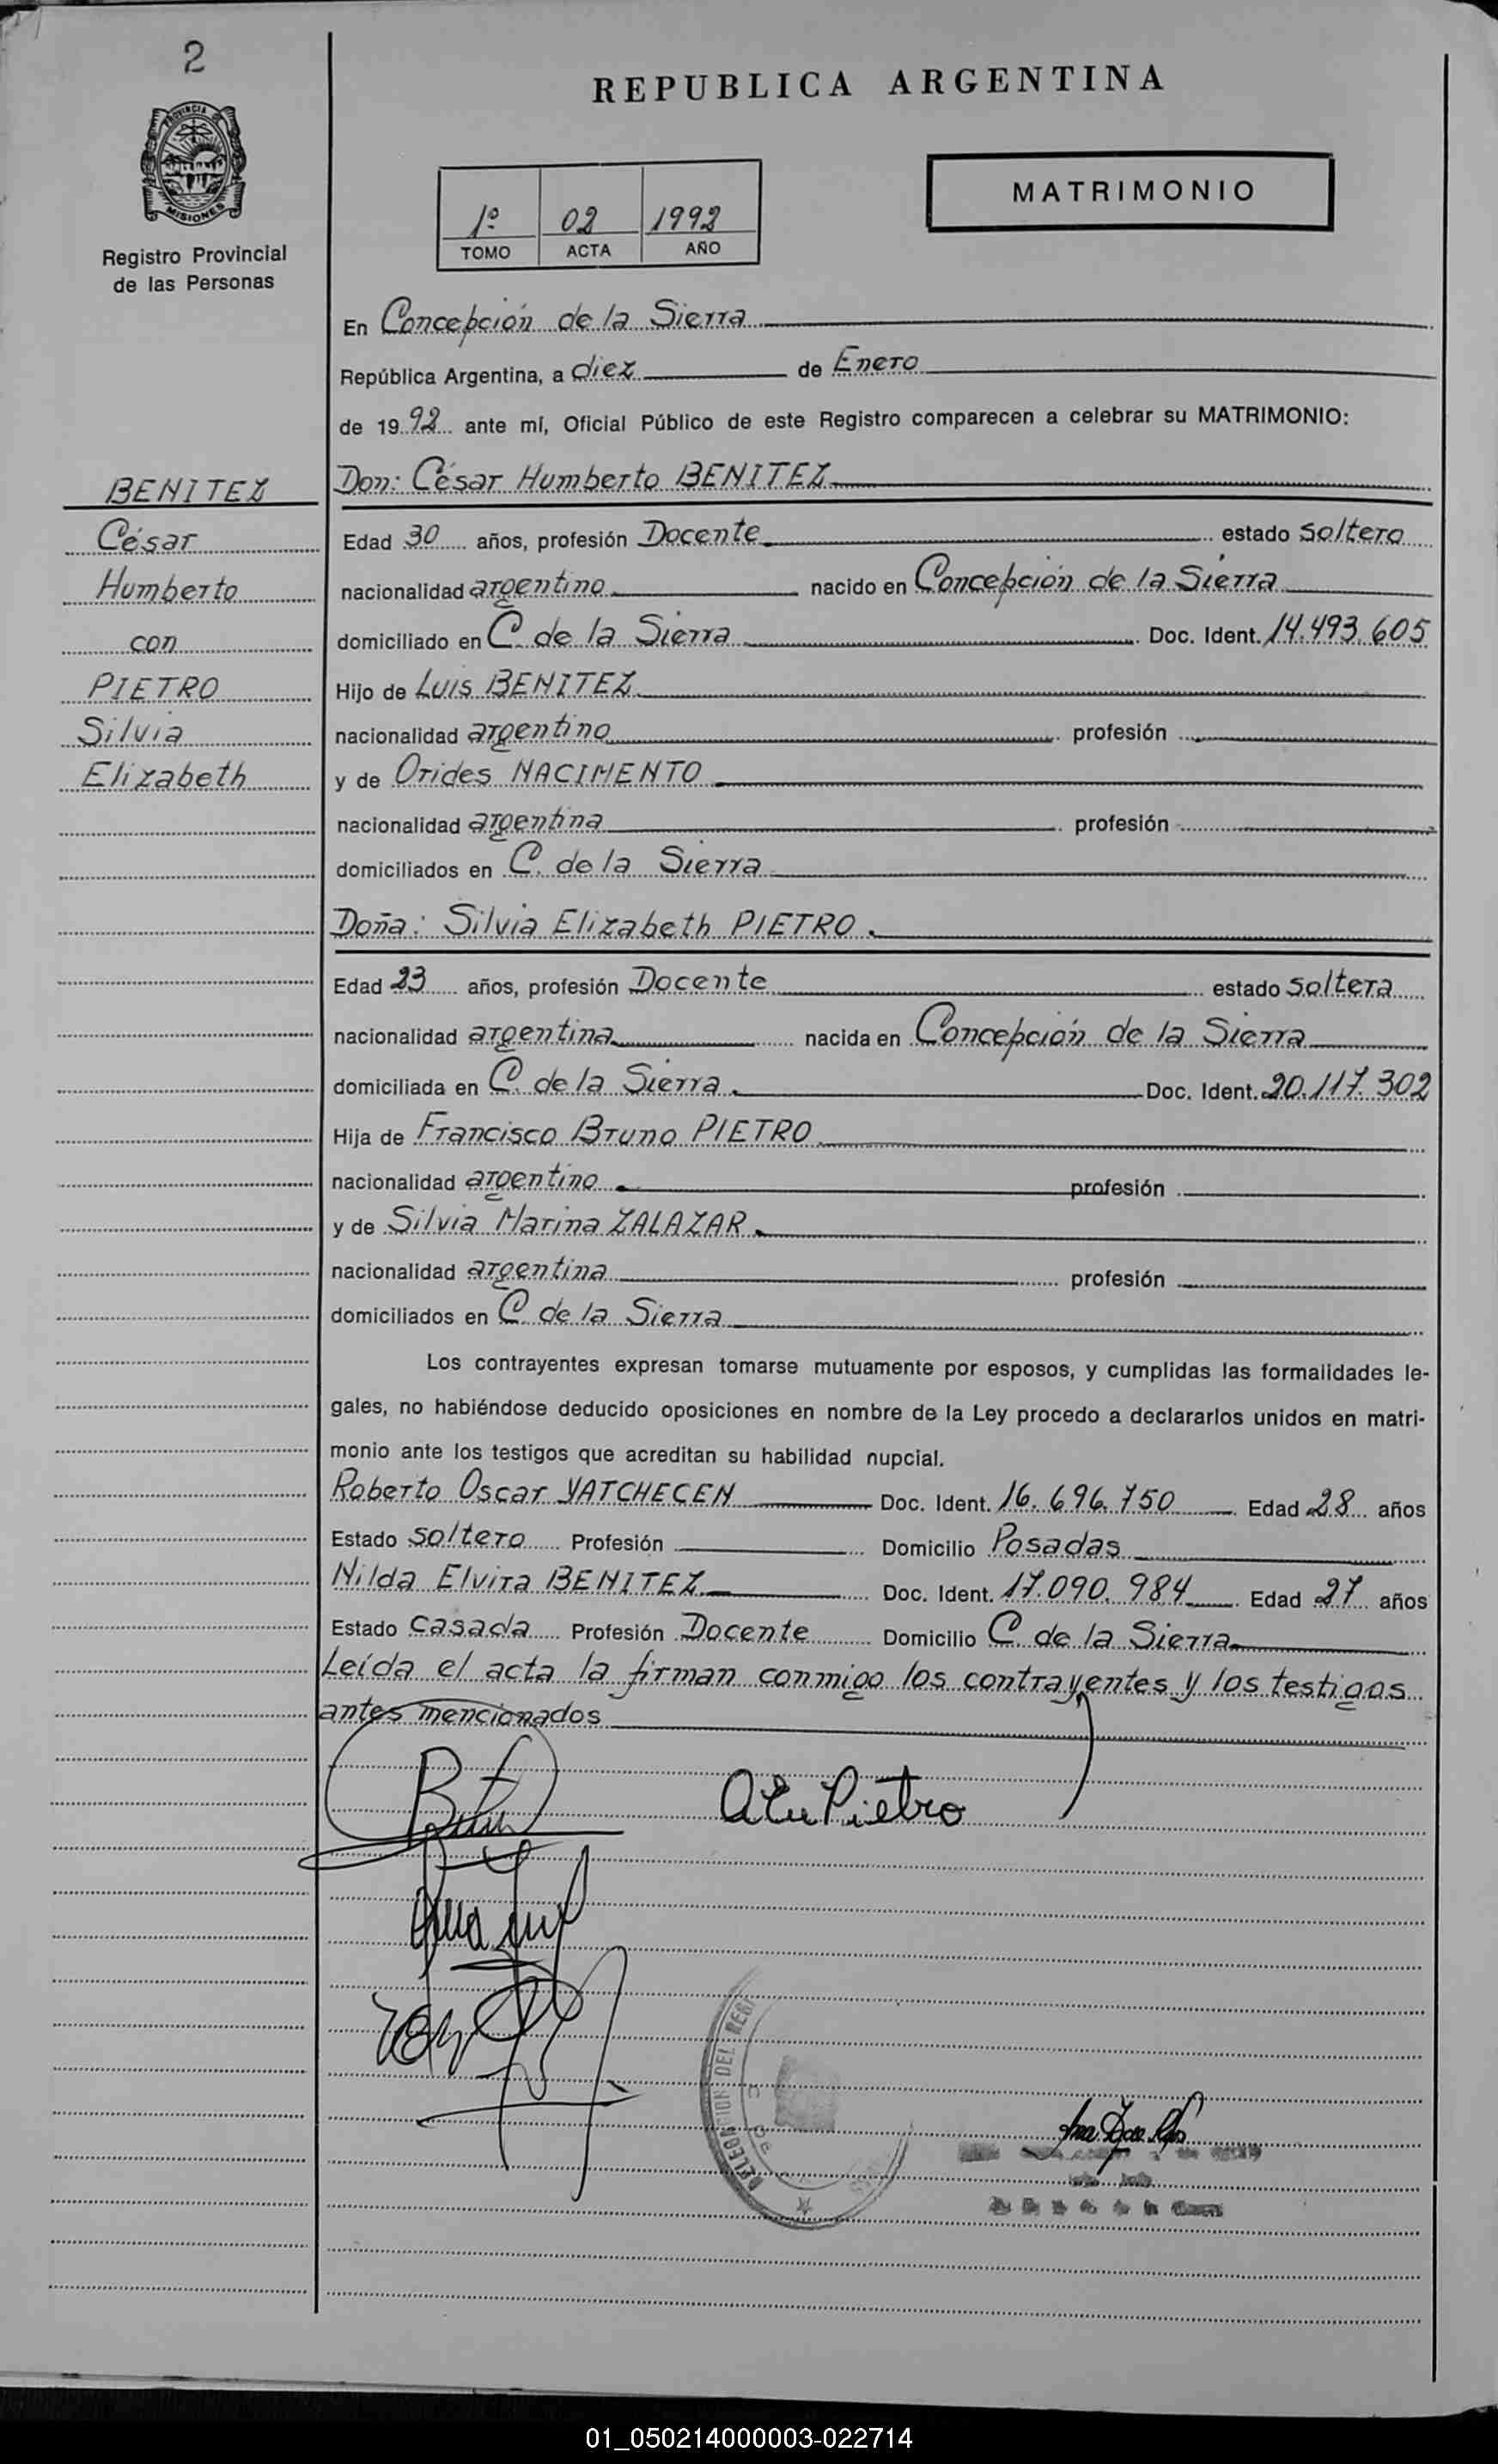 2
PROVINCIA DE
MISIONES
Registro Provincial
de las Personas
REPUBLICA ARGENTINA
1º 02 1992
TOMO ACTA AÑO
MATRIMONIO
En Concepción de la Sierra
República Argentina, a diez de Enero
de 1992 ante mí, Oficial Público de este Registro comparecen a celebrar su MATRIMONIO:
BENITEZ
César
Humberto
con
PIETRO
Silvia
Elizabeth
Don: César Humberto BENITEZ
Edad 30 años, profesión Docente estado soltero
nacionalidad argentino nacido en Concepción de la Sierra
domiciliado en C. de la Sierra Doc. Ident. 14.493.605
Hijo de Luis BENITEZ
nacionalidad argentino profesión
y de Orides NACIMENTO
nacionalidad argentina profesión
domiciliados en C. de la Sierra
Doña: Silvia Elizabeth PIETRO.
Edad 23 años, profesión Docente estado soltera
nacionalidad argentina nacida en Concepción de la Sierra
domiciliada en C. de la Sierra. Doc. Ident. 20.117.302
Hija de Francisco Bruno PIETRO
nacionalidad argentino. profesión
y de Silvia Marina ZALAZAR.
nacionalidad argentina profesión
domiciliados en C. de la Sierra
Los contrayentes expresan tomarse mutuamente por esposos, y cumplidas las formalidades le-
gales, no habiéndose deducido oposiciones en nombre de la Ley procedo a declararlos unidos en matri-
monio ante los testigos que acreditan su habilidad nupcial.
Roberto Oscar YATCHECEN Doc. Ident. 16.696.750 Edad 28 años
Estado soltero Profesión Domicilio Posadas
Nilda Elvira BENITEZ Doc. Ident. 17.090.984 Edad 27 años
Estado casada Profesión Docente Domicilio C. de la Sierra
Leída el acta la firman conmigo los contrayentes y los testigos
antes mencionados
Pietro
DELEGACION DEL REGI
01_050214000003-022714